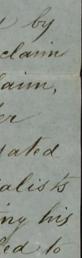 by
claim
laim,
er
ated
ialists
ing his
led to